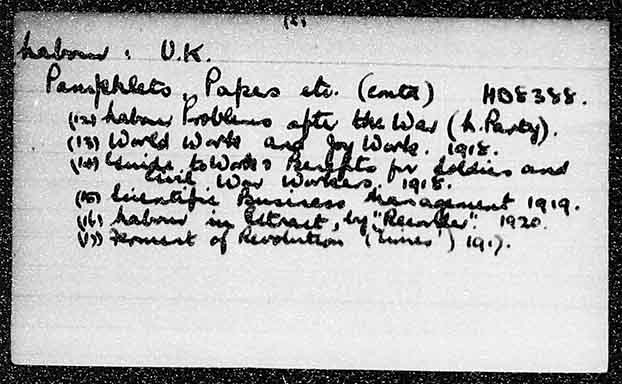 (2)
Labour : U.K.
Pamphlets, Papers etc. (contd) HD8388.
(12) Labour Problems after the War (L. Party).
(13) World Work and Joy Work. 1918.
(14) Guide to Work & Benefits for Soldiers and
Civil War Workers. 1918.
(15) Scientific Business Management 1919.
(16) Labour in Retreat, by "Recorder". 1920.
(17) Ferment of Revolution (Times') 1917.